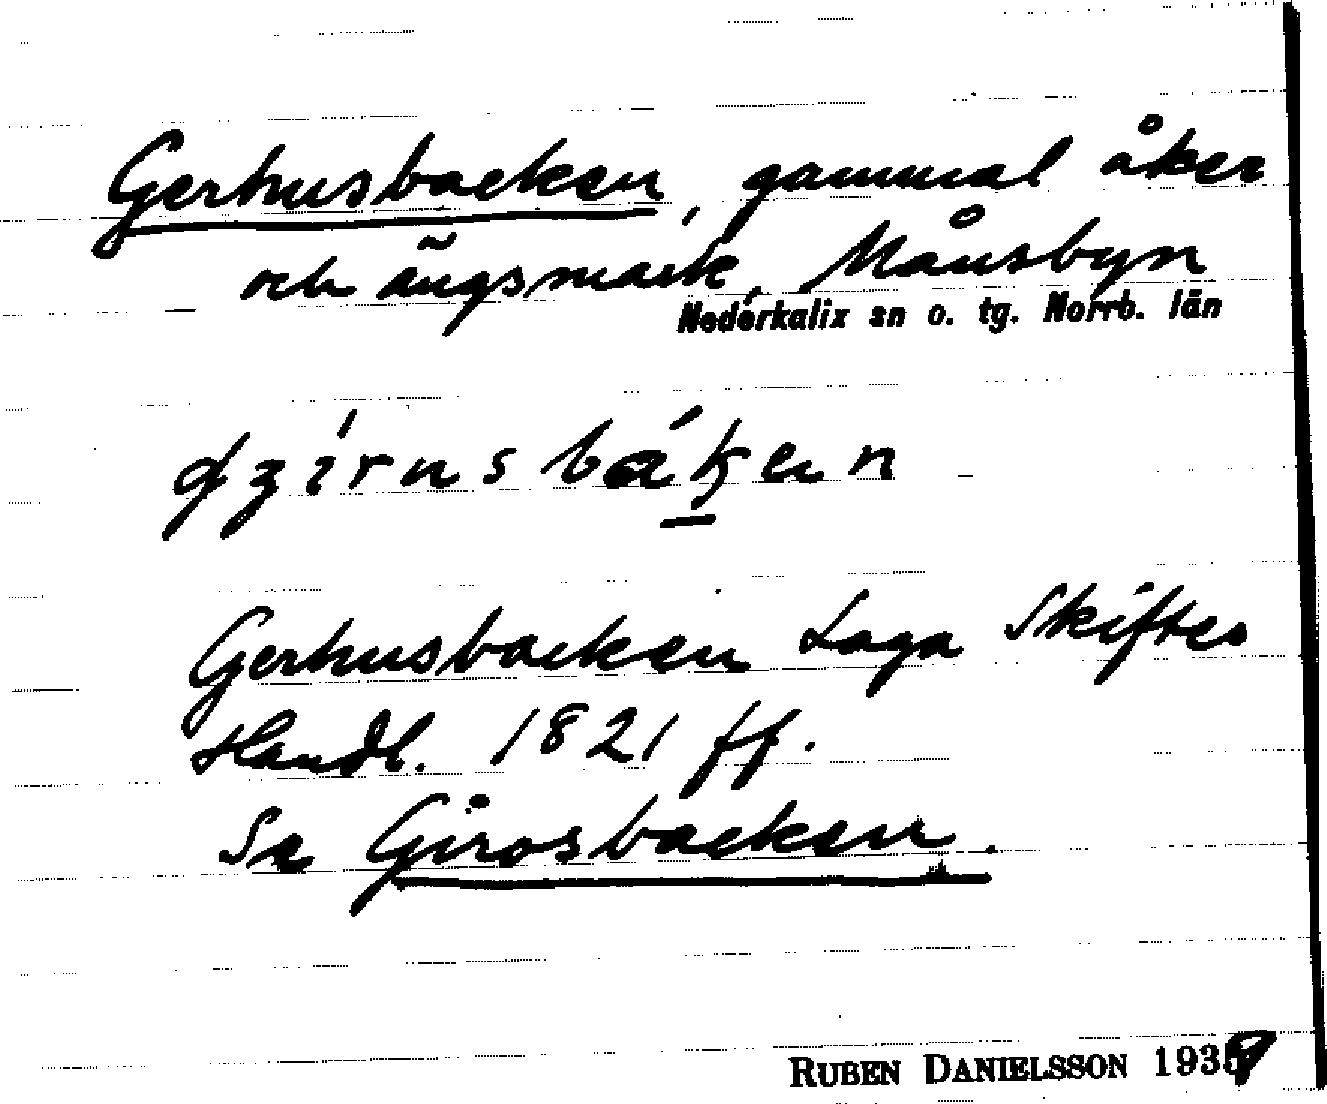 Gerhusbacken, gammal åker
och ängsmark, Månsbyn
Nederkalix sn o. tg. Norrb. län
Gerhusbacken Laga Skiftes
Handl. 1821 ff.
Se Girosbacken.
RUBEN DANIELSSON 1939